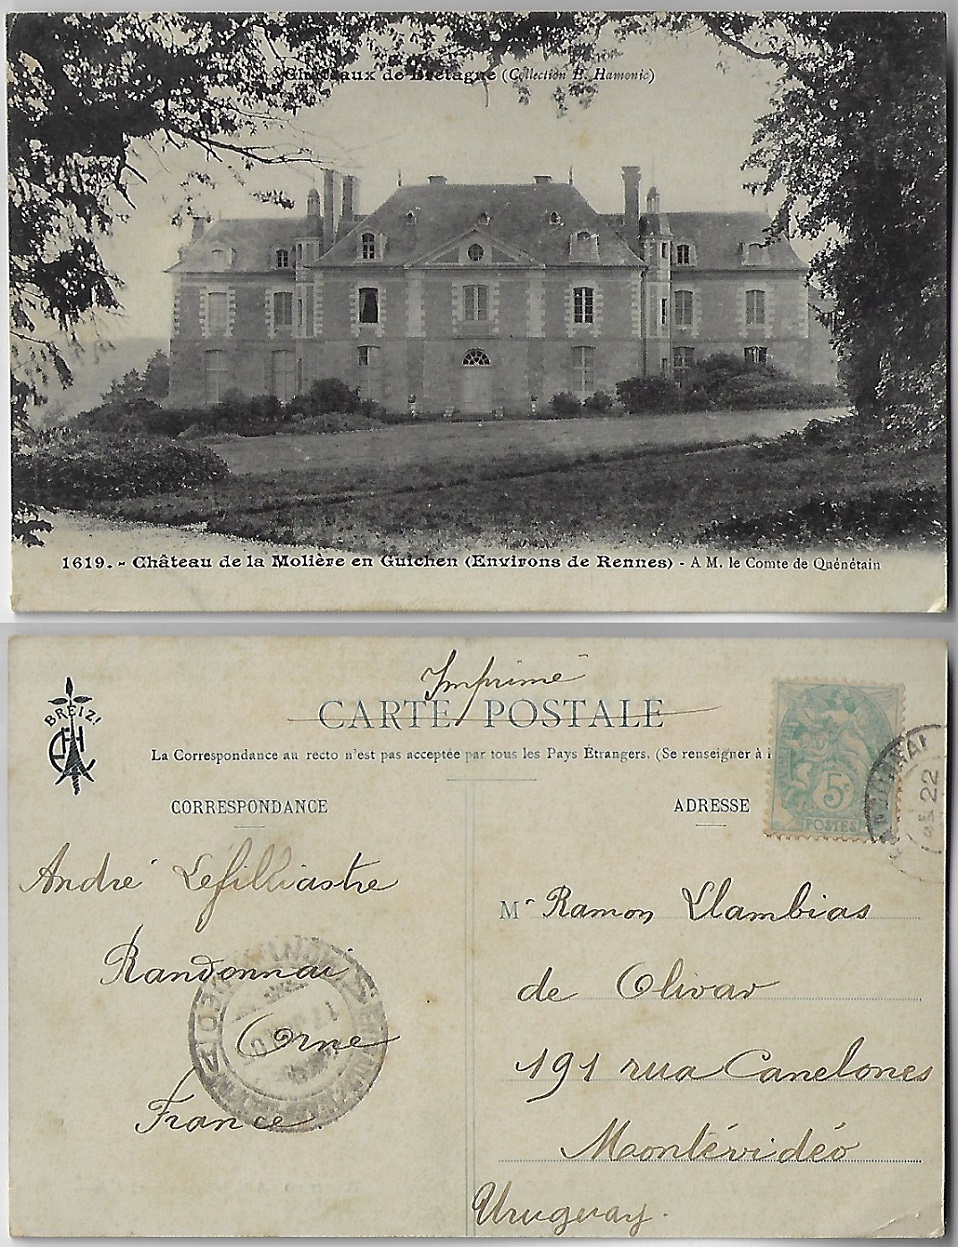 Châteaux de Bretagne (Collection E. Hamonic)
1619. - Château de la Molière en Guichen (Environs de Rennes) - A M. le Comte de Quénétain
BREIZ!
Imprimé
CARTE POSTALE
La Correspondance au recto n'est pas acceptée par tous les Pays Étrangers. (Se renseigner à
CORRESPONDANCE
ADRESSE
5c
POSTES
22
André Lefilliastre
Randonnai
Orne
France.
Mr Ramon Llambias
de Olivar
191 rua Canelones
Montévidéo
Uruguay.